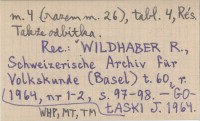 m. 4 (razem m. 26), tabl. 4, Rés.
Także odbitka.
Rec.: WILDHABER R.,
Schweizerische Archiv für
Volkskunde (Basel) t. 60, r.
1964, nr 1-2, s. 97-98. — GO-
ŁASKI J. 1964.
WHP, MT, TM